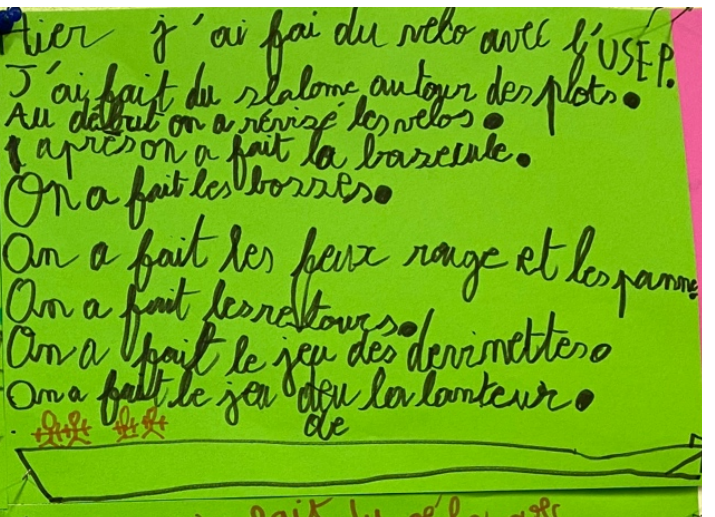 Hier j'ai fai du velo avec l'USEP.
J'ai fait du slalome autour des plots.
Au début on a révisé les velos.
après on a fait la bascule.
On a fait les bosses.
On a fait les feux rouge et les panne
On a fait les retours.
On a fait le jeu des devinettes.
On a fait le jeu de la lanteur.
de
fait du vélo avec